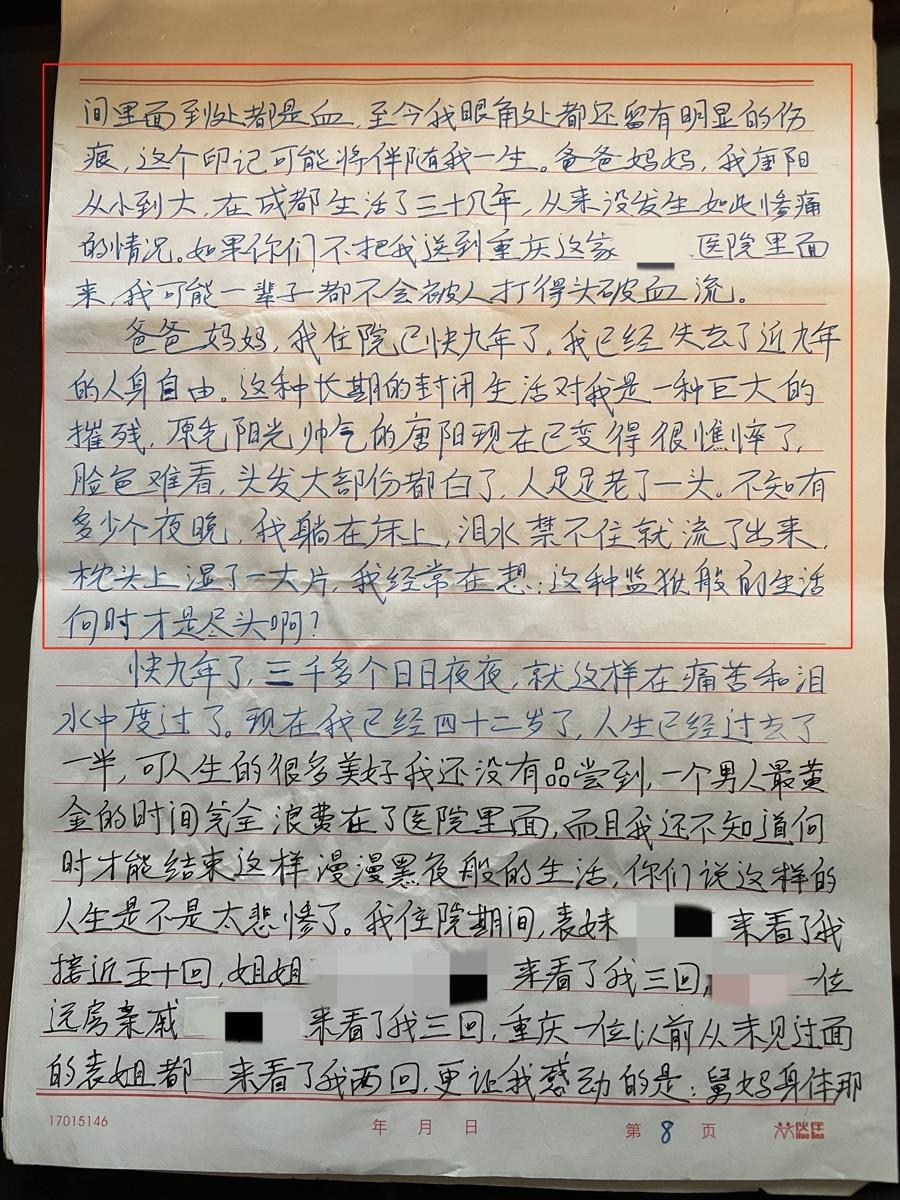 间里面到处都是血，至今我眼角处都还留有明显的伤
痕，这个印记可能将伴随我一生。爸爸妈妈，我唐阳
从小到大，在成都生活了三十几年，从来没发生如此惨痛
的情况。如果你们不把我送到重庆这家 医院里面
来，我可能一辈子都不会被人打得头破血流。
爸爸妈妈，我住院已快九年了，我已经失去了近九年
的人身自由。这种长期的封闭生活对我是一种巨大的
摧残，原先阳光帅气的唐阳现在已变得很憔悴了，
脸色难看，头发大部份都白了，人足足老了一头。不知有
多少个夜晚，我躺在床上，泪水禁不住就流了出来，
枕头上湿了一大片，我经常在想：这种监狱般的生活
何时才是尽头啊？
快九年了，三千多个日日夜夜，就这样在痛苦和泪
水中度过了。现在我已经四十二岁了，人生已经过去了
一半，可人生的很多美好我还没有品尝到，一个男人最黄
金的时间完全浪费在了医院里面，而且我还不知道何
时才能结束这样漫漫黑夜般的生活，你们说这样的
人生是不是太悲惨了。我住院期间，表妹 来看了我
接近五十回，姐姐 来看了我三回， 一位
远房亲戚 来看了我三回，重庆一位以前从未见过面
的表姐都 来看了我两回，更让我感动的是：舅妈身体那
17015146 年 月 日 第 8 页 伙伴 Huo Ban